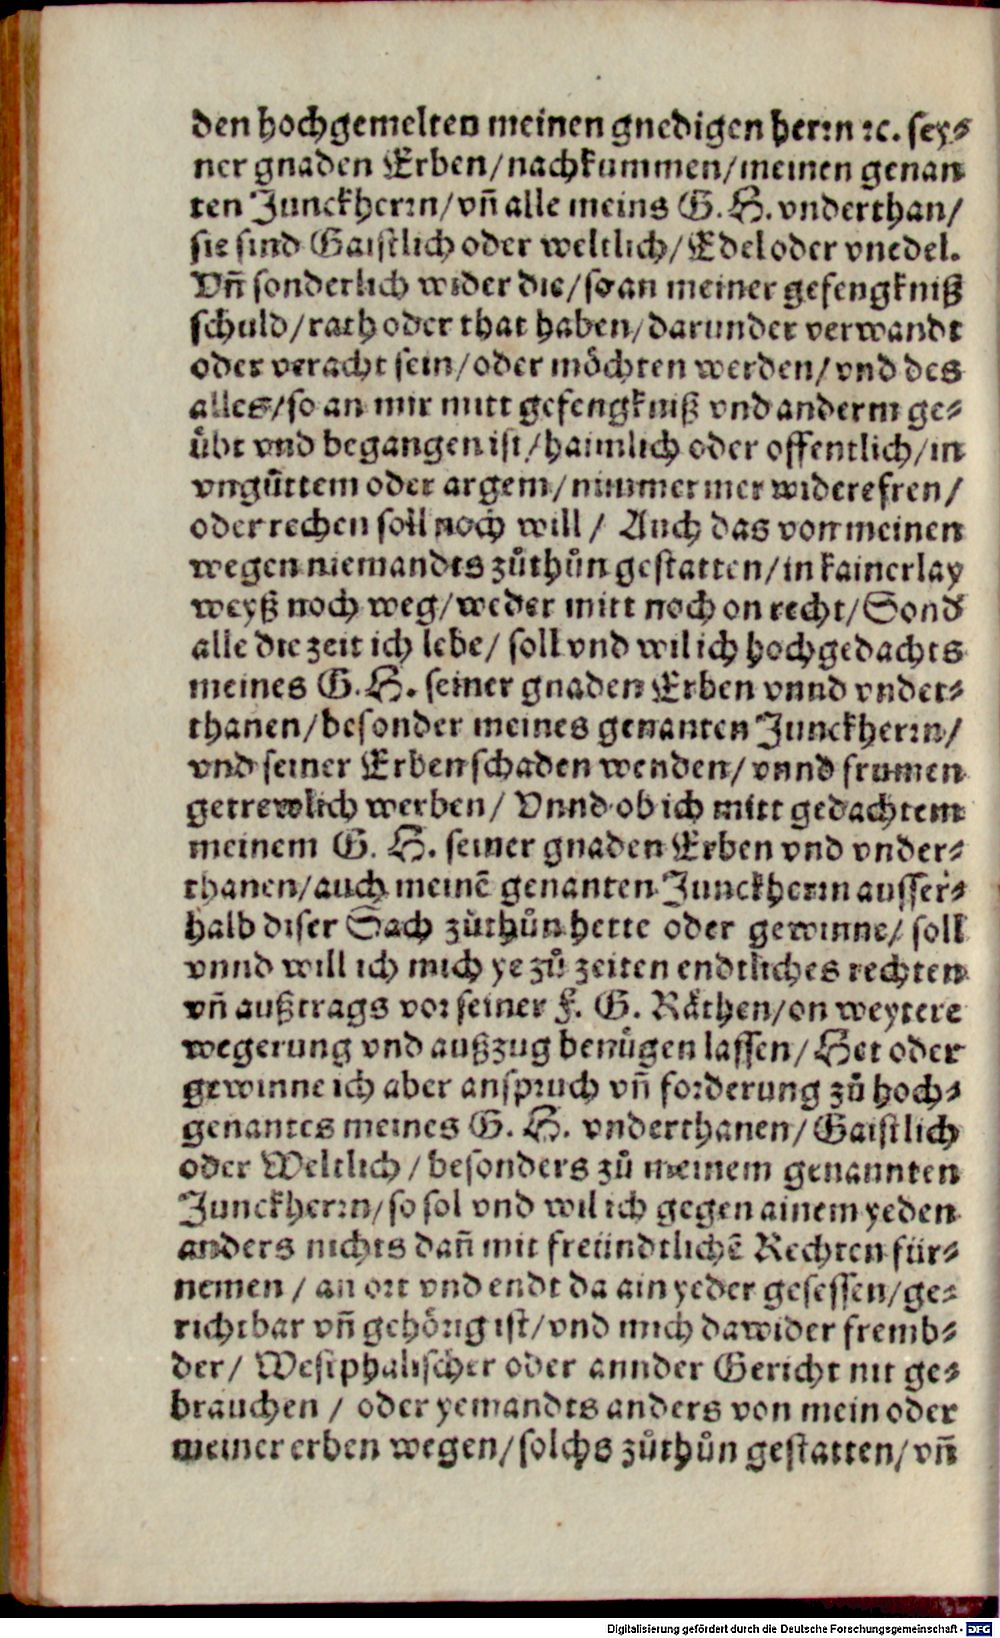 den hochgemelten meinen gnedigen herꝛn ꝛc. sey⸗
ner gnaden Erben/nachkummen/meinen genan
ten Junckherꝛn/vñ alle meins G. H. vnderthan/
sie sind Gaistlich oder weltlich/Edel oder vnedel.
Vñ sonderlich wider die/so an meiner gefengkniß
schuld/rath oder that haben/darunder verwandt
oder veracht sein/oder möchten werden/vnd des
alles/so an mir mitt gefengkniß vnd anderm ge⸗
übt vnd begangen ist/haimlich oder offentlich/in
vngůttem oder argem/nimmer mer widerefren/
oder rechen soll noch will / Auch das von meinen
wegen niemandts zůthůn gestatten/in kainerlay
weyß noch weg/weder mitt noch on recht/Sond
alle die zeit ich lebe/ soll vnd wil ich hochgedachts
meines G. H. seiner gnaden Erben vnnd vnder⸗
thanen/besonder meines genanten Junckherꝛn/
vnd seiner Erben schaden wenden/ vnnd frumen
getrewlich werben/ Vnnd ob ich mitt gedachtem
meinem G. H. seiner gnaden Erben vnd vnder⸗
thanen/auch meinē genanten Junckherꝛn ausser⸗
halb diser Sach zůthůn hette oder gewinne/ soll
vnnd will ich mich ye zů zeiten endtliches rechten
vñ außtrags voꝛ seiner F. G. Räthen/on weytere
wegerung vnd außzug benůgen lassen/ Het oder
gewinne ich aber anspꝛuch vñ foꝛderung zů hoch⸗
genantes meines G. H. vnderthanen/ Gaistlich
oder Weltlich / besonders zů meinem genannten
Junckherꝛn/so sol vnd wil ich gegen ainem yeden
anders nichts dañ mit freündtlichē Rechten für⸗
nemen / an oꝛt vnd endt da ain yeder gesessen/ge⸗
richtbar vñ gehöꝛig ist/vnd mich dawider fremb⸗
der/ Westphalischer oder annder Gericht nit ge⸗
brauchen / oder yemandts anders von mein oder
meiner erben wegen/solchs zůthůn gestatten/vñ
Digitalisierung gefördert durch die Deutsche Forschungsgemeinschaft - DFG